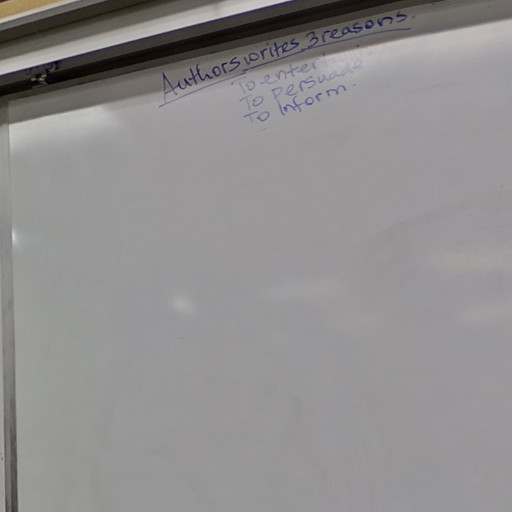 Authors writes 3 reasons.
To entertain.
To persuade
To Inform.